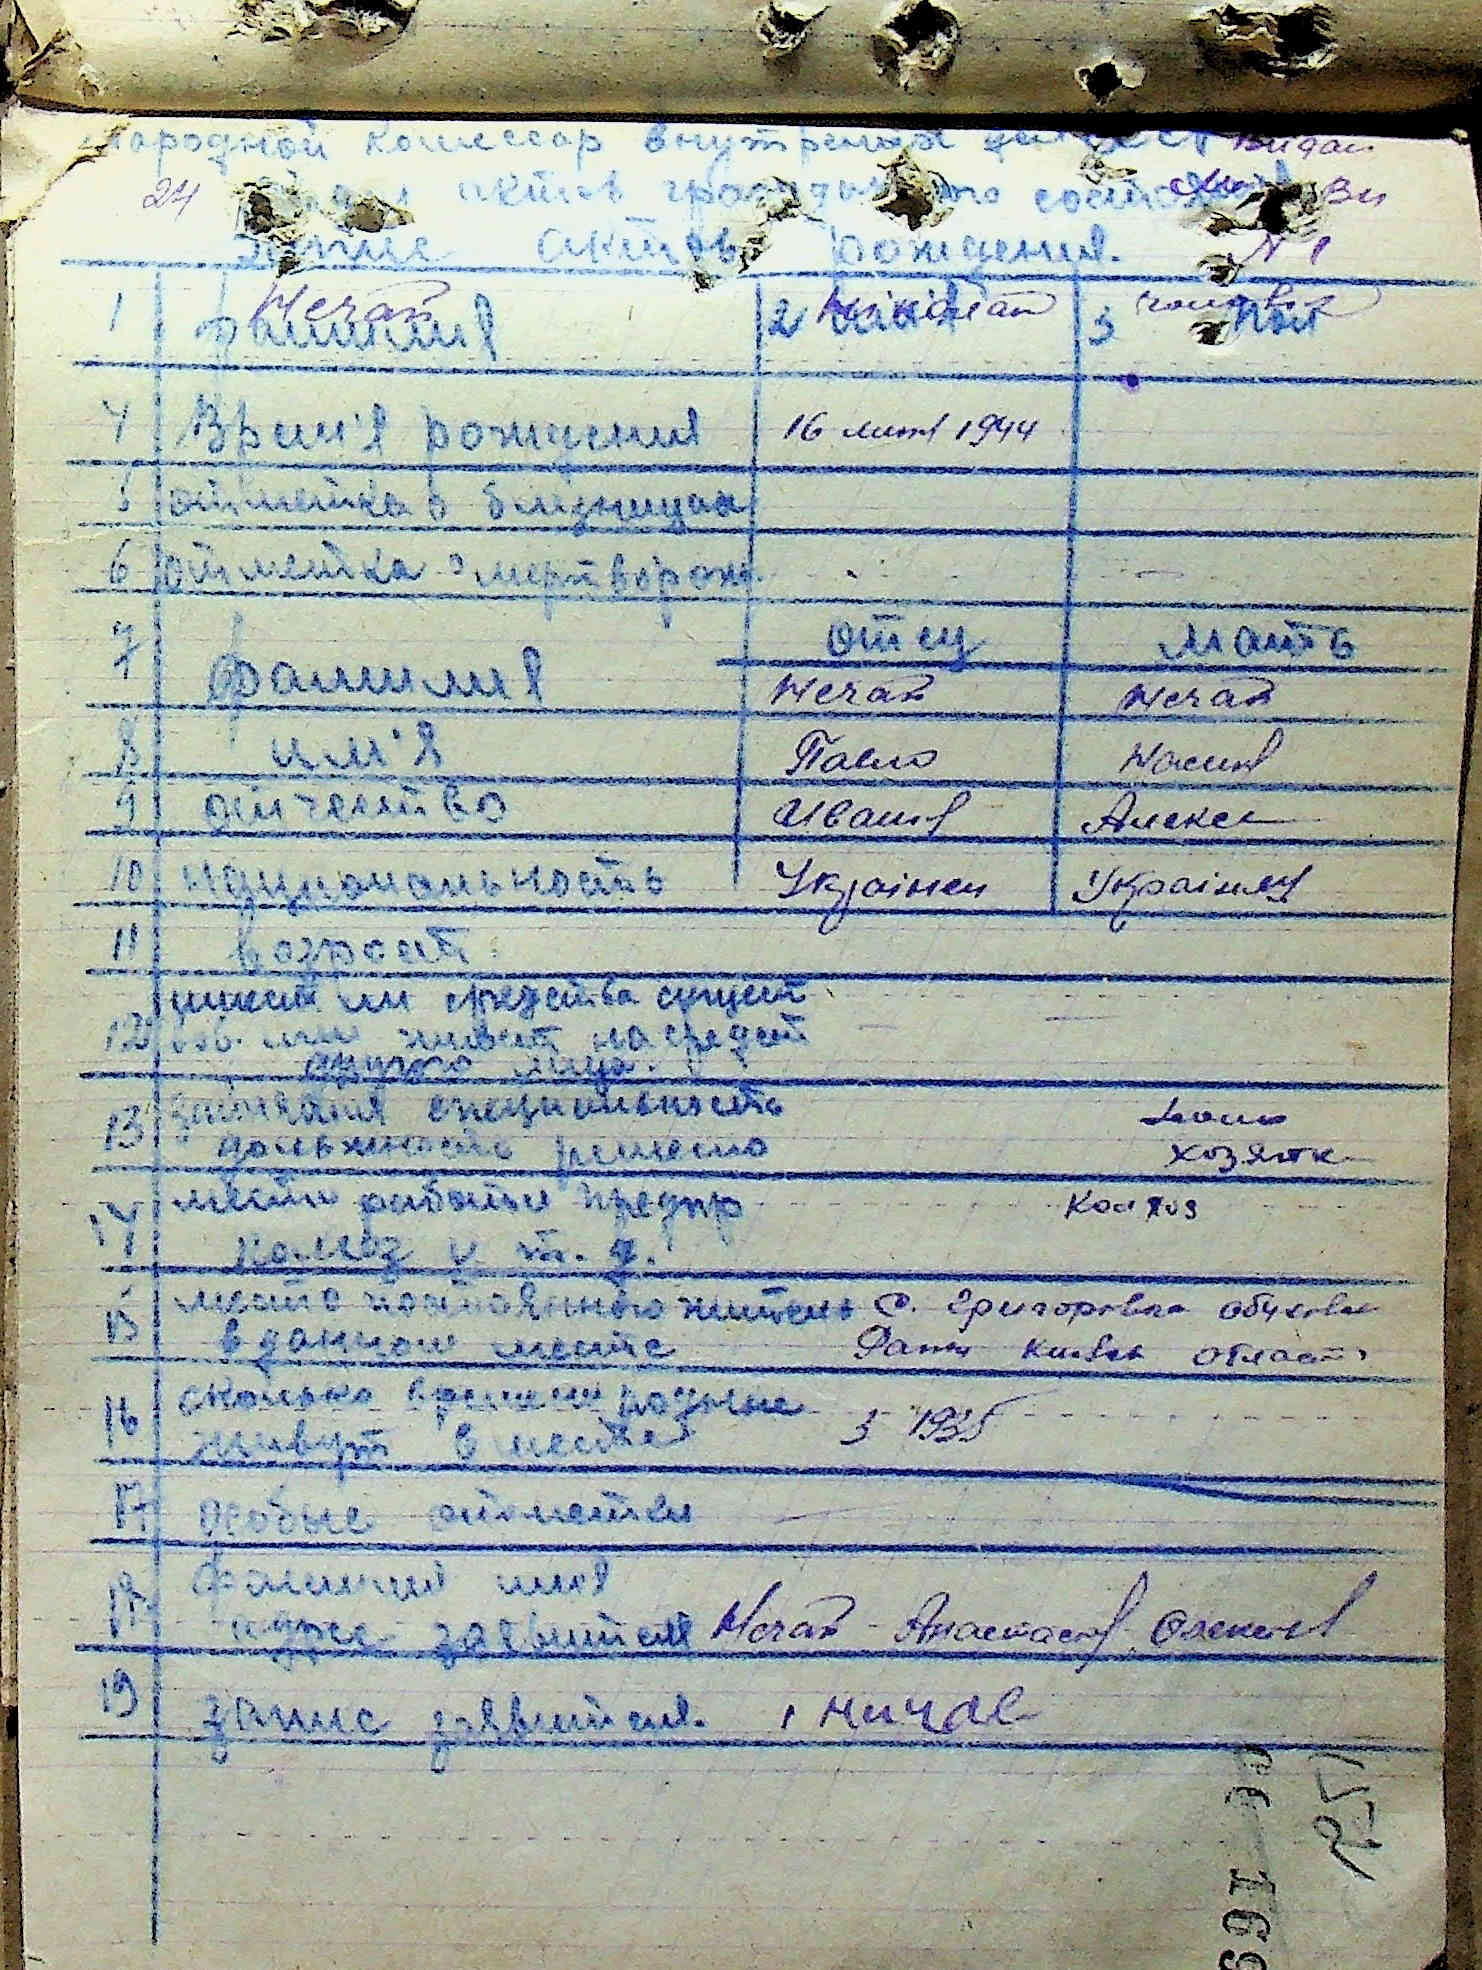 Народной комессар внутрених
24 актов состояния
запис актов рождения. N 1
1 Нечай фамилия 2 Николай имя 3 чоловік пол
4 Врем'я рождения 16 1944
5 отметка о близнецах
6 отметка о мертворож.
7 фамилия отец мать
Нечай Нечай
8 им'я Павло
9 отчество Иванов Алексе
10 национальность Українец Україн
11 возраст.
12 имеет ли средства сущест
или живет на средст
другого лица.
13 специальность
должность ремесло хозяйк
14 место работы предпр Колхоз
колхоз и т. д.
15 место постоянного житель с. Григоровка Обухов
в данном месте Киевск област
16 сколько времени родные з 1935
живут в месте
17 особые отметки
18 фамилия имя
адрес заявителя Нечай Анастасія Олексіїв
19 запис заявителя. Ничае
169